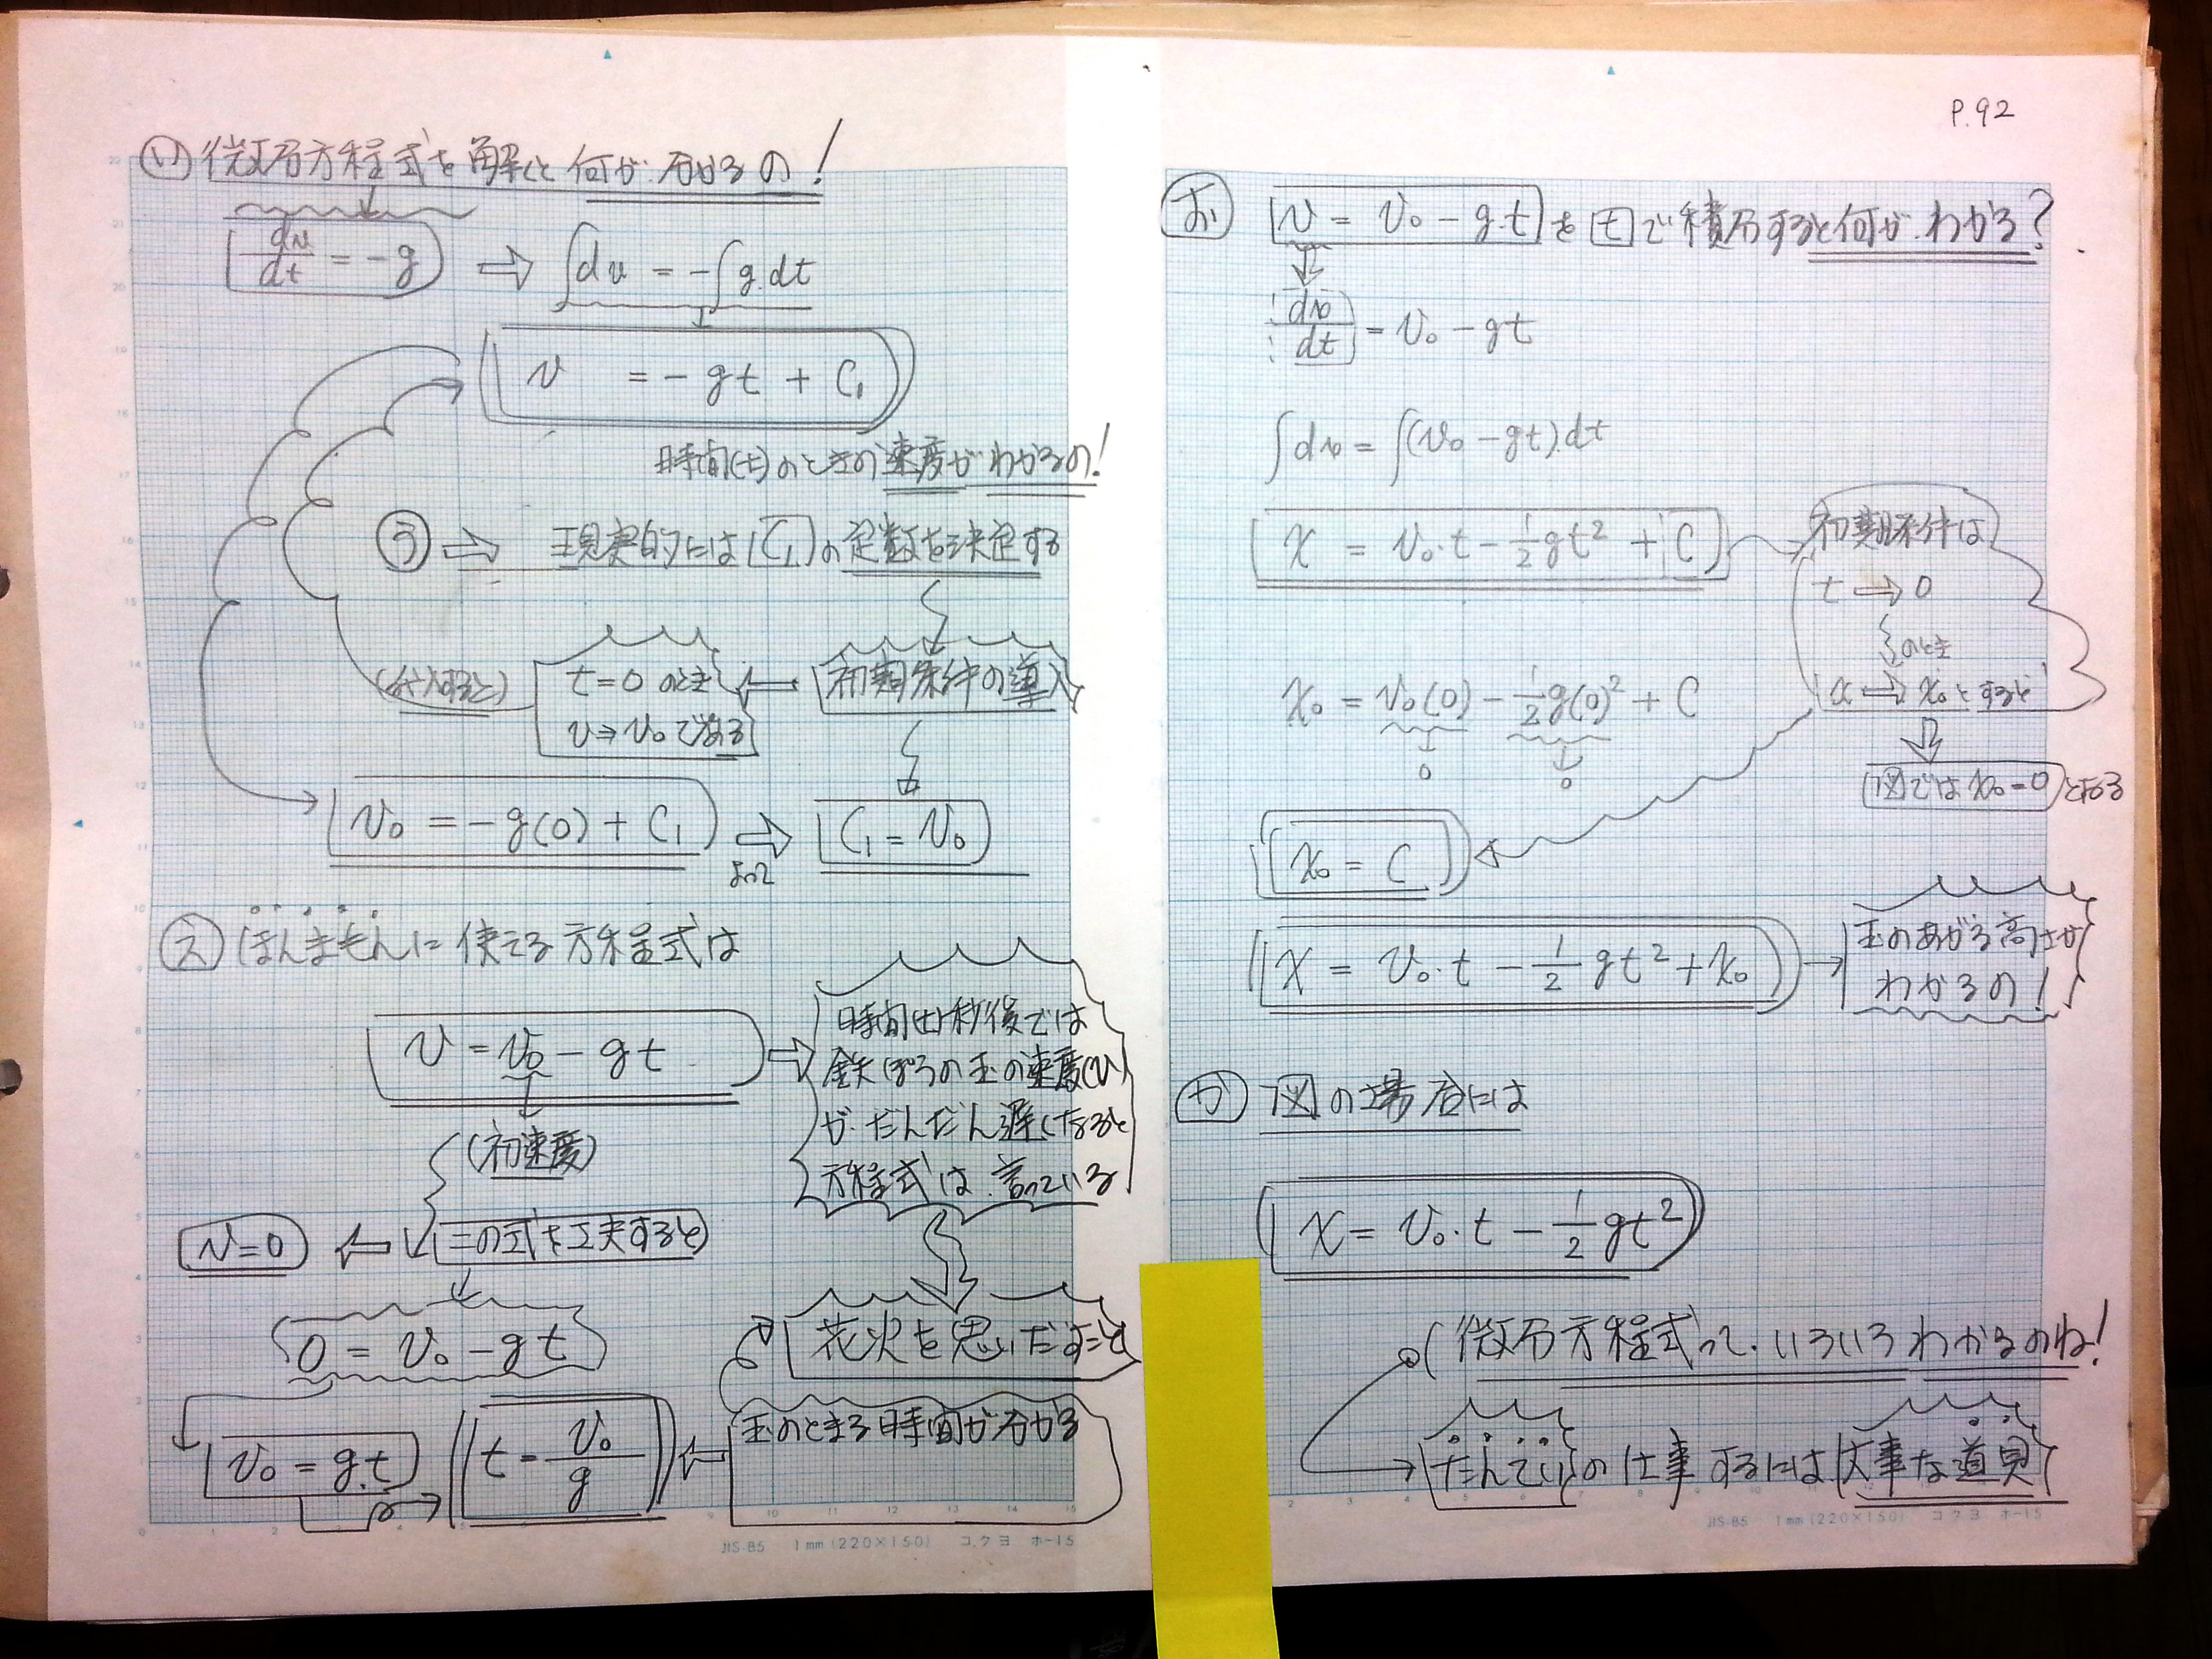 P.92
い 微分方程式を解くと何が分かるの!
dv/dt = -g ⇒ ∫dv = -∫g.dt
v = -gt + C₁
時間(t)のときの速度がわかるの!
う ⇒ 現実的には C₁ の定数を決定する
初期条件の導入
t=0 のとき
v⇒v₀である
(代入すると)
v₀ = -g(0) + C₁ ⇒ C₁ = v₀
よって
え ほんまもんに使える方程式は
v = v₀ - gt
(初速度)
時間(t)秒後では
鉄ぽうの玉の速度(v)
が だんだん遅くなると
方程式は、言っている
この式を工夫すると
v=0
0 = v₀ - gt
花火を思いだすこと
v₀ = g.t
t = v₀/g
玉のとまる時間が分かる
JIS-B5 1mm(220×150) コクヨ ホ-15
お v = v₀ - g.t を t で積分すると何がわかる?
dv/dt = v₀ - gt
∫dv = ∫(v₀ - gt).dt
x = v₀.t - 1/2 gt² + C
初期条件は
t ⇒ 0
のとき
x ⇒ x₀とすると
図では x₀=0 となる
x₀ = v₀(0) - 1/2 g(0)² + C
0 0
x₀ = C
x = v₀.t - 1/2 gt² + x₀
玉のあがる高さが
わかるの!
か 図の場合には
x = v₀.t - 1/2 gt²
微分方程式って、いろいろわかるのね!
たんていの仕事するには大事な道具
JIS-B5 1mm(220×150) コクヨ ホ-15